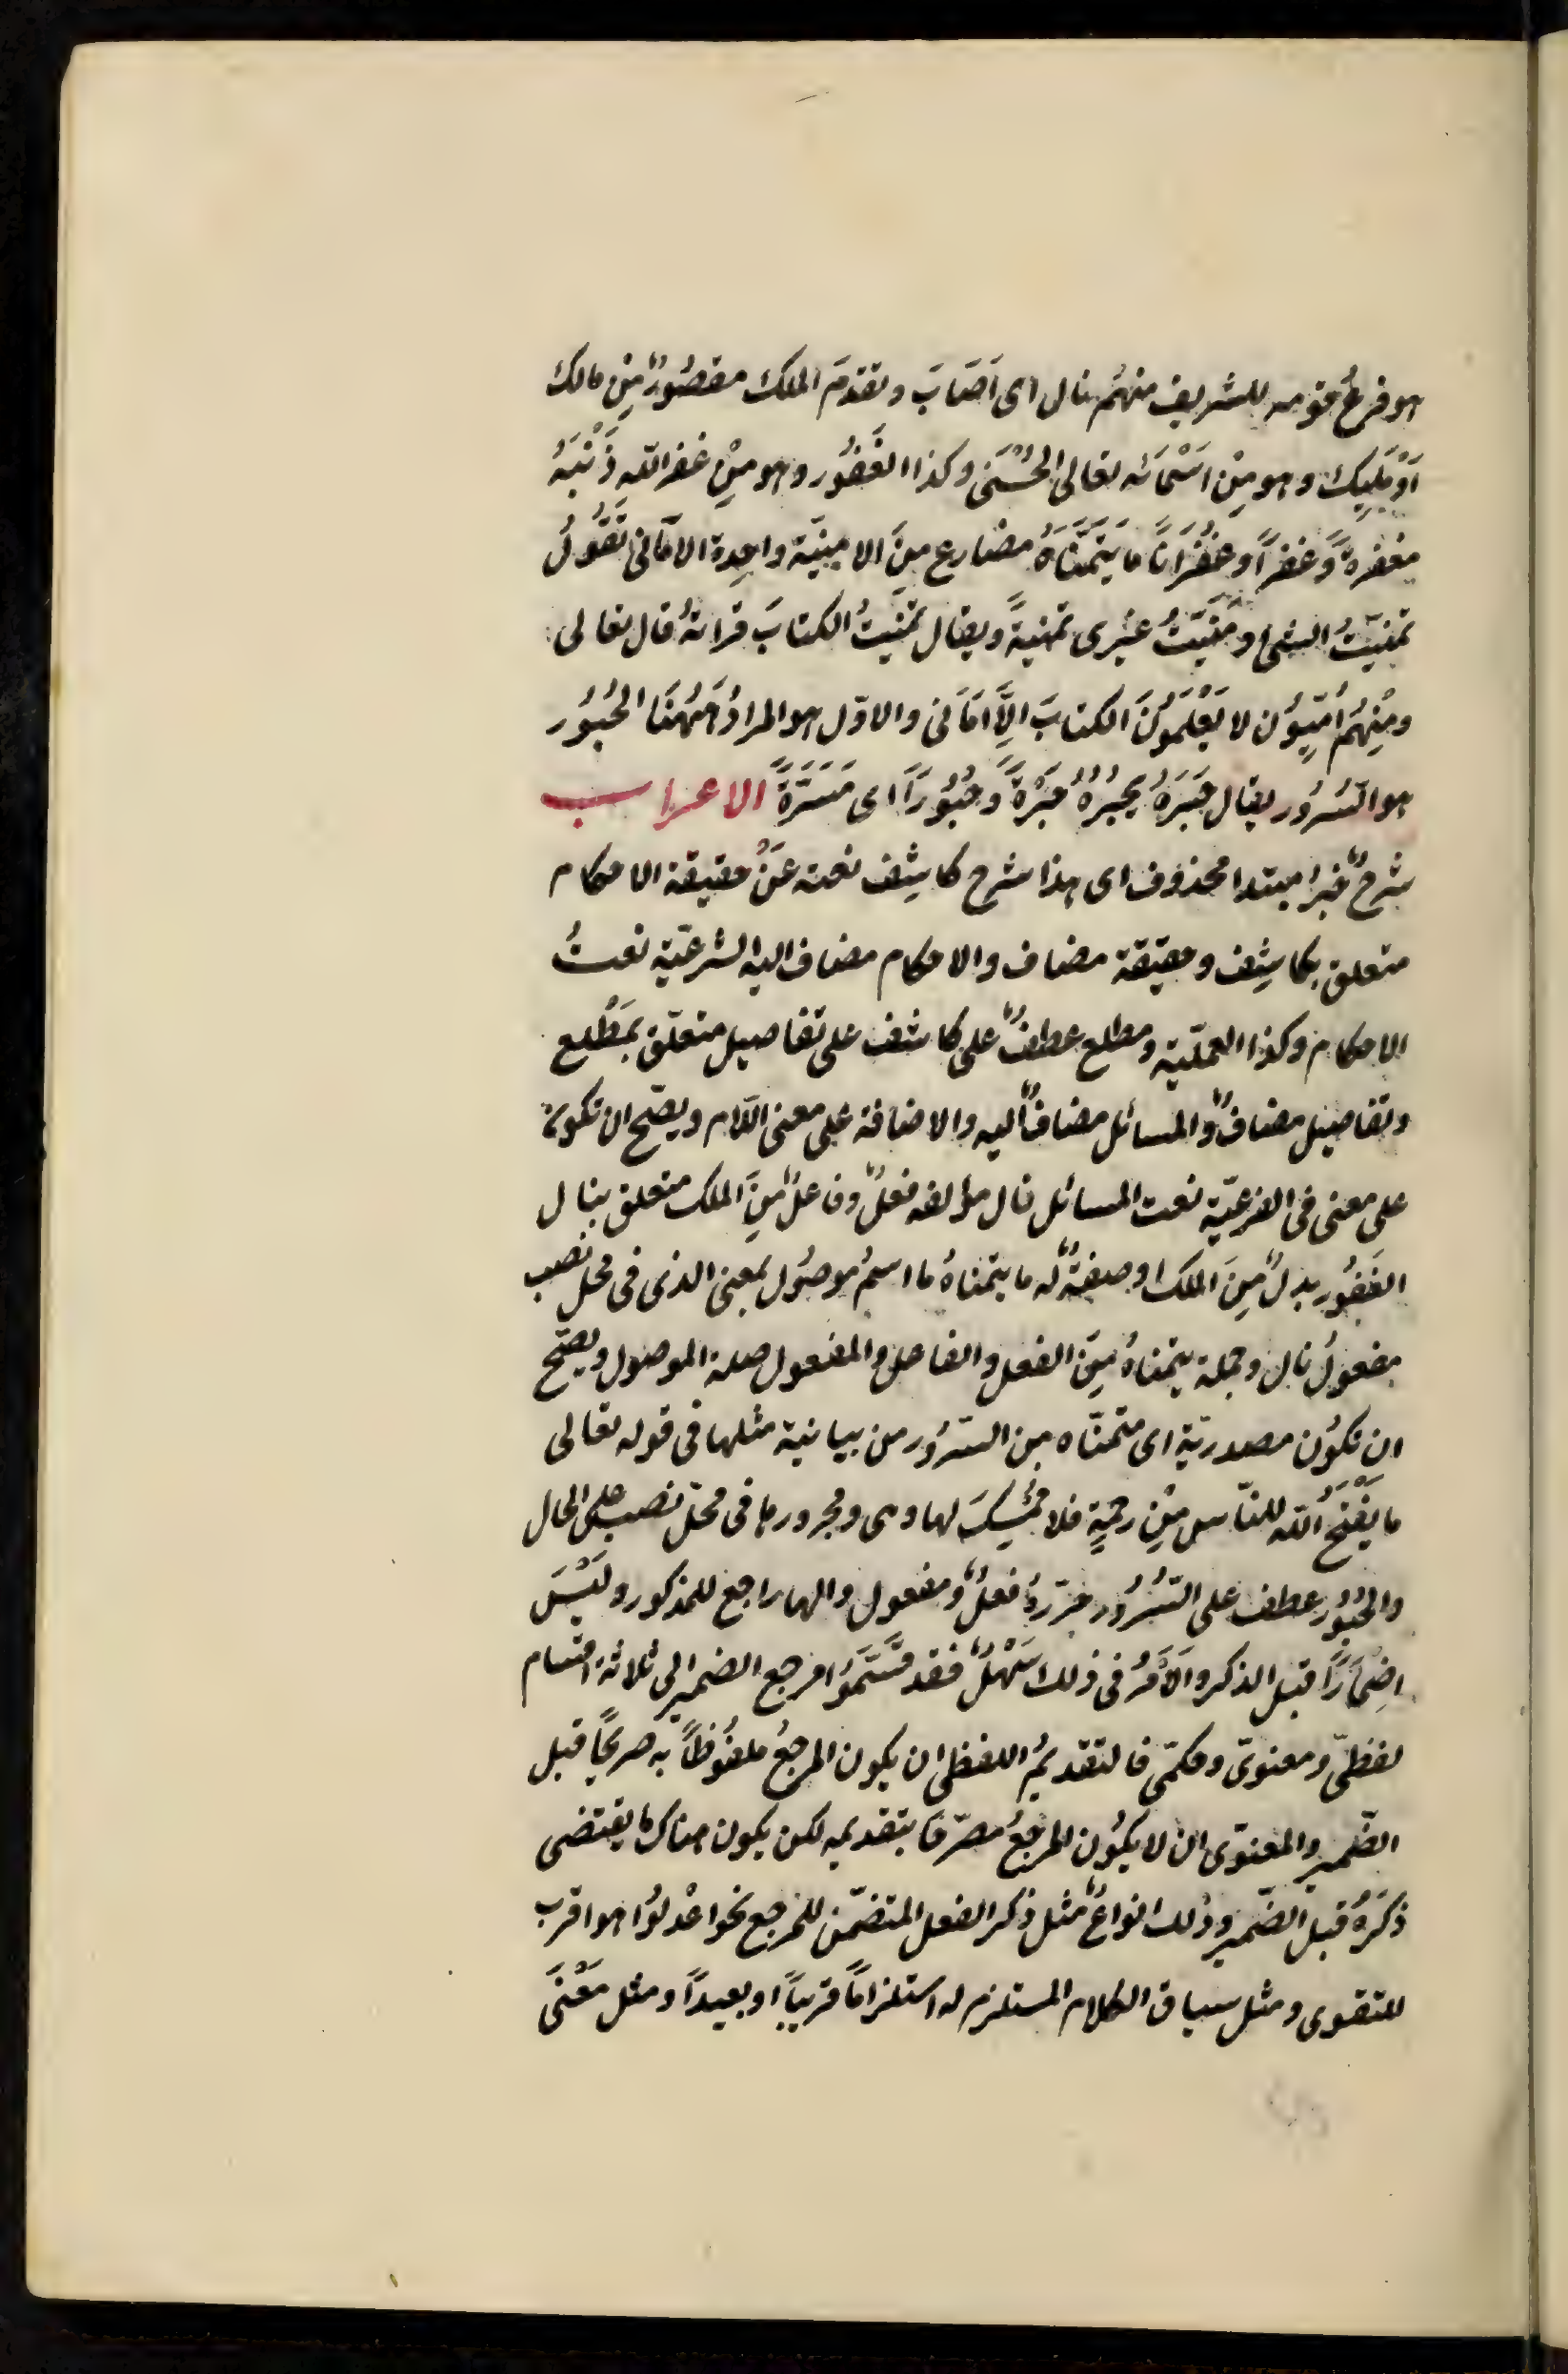 هو فرعُ قومه للشريف منهُم نال اى اَصَابَ وتقدمَ الملك مقصُورٌ مِن مالك
اَوْ مَلِيك وهو مِن اَسْمَائه تعالى الحُسْنَى وكذا الغَفُور وهو مِنْ غفر اللّه ذَنْبَهُ
مغفرةً وَغفراً وغُفْرَاناً ما يَتَمَنَّاهُ مضارع مِنَ الامنِيّة واحِدة الامَّانى تَقُولُ
تمنيّتُ الشئ ومَنَّيتُ غيرى تمنيةً ويقال تمنيتُ الكتابَ قراتهُ قال تعالى
ومِنهُم اُمّيُون لا يَعْلَمُونَ الكتابَ الاَّ امَانى والاوّل هو المرادُ هَهُنَا الحُبُور
هو السّرُور يقال حَبَرَهُ يحبُرُهُ حَبْرَةً وَحُبُوراً اى مَسَرَّةً الاعراب
شرحٌ خبرُ مبتدا محذوف اى هذا شرح كاشِف نعته عَنْ حقيقة الاحكام
متعلق بكاشِف وحقيقة مضاف والاحكام مضاف اليه الشرعيّة نعتُ
الاحكام وكذا العمليّة ومطلع عطفٌ على كاشف على تفاصيل متعلّق بمُطْلع
وتفاصيل مضافٌ والمسائل مضافٌ اليه والاضافة على معنى اللّام ويصّح ان تكون
على معنى فى الفرعيّة نعت المسائل نال مؤلفه فعلٌ وفاعلٌ مِنَ الملك متعلق بنال
الغفُور بدلٌ مِنَ الملك او صفةٌ له ما يتمناهُ ما اسمُ موصُول بمعنى الذى فى محل نصب
مفعولُ نال وجملة يتمناهُ مِنَ الفعل والفاعل والمفعول صلة الموصول ويصّح
ان تكُون مصدريّة اى متمنّاه من السّرُور من بيانية مثلها فى قوله تعالى
ما يَفْتَحُ اللّه للنّاس مِن رحمةٍ فلا مُمْسِكَ لها وهى ومجرورها فى محلّ نصب على الحال
والحُبُور عطف على السّرُور حرّرهُ فعلٌ ومفعول والها راجع للمذكور ولَيْسَ
اِضْمَاراً قبل الذكر والاَمْرُ فى ذلك سَهْلٌ فقد قَسَّمَوُا مرجع الضمير الى ثلاثة اقسام
لفظىّ ومعنوىّ وحكمّى فالتقديمُ اللفظى ان يكون المرجعُ ملفُوظاً به صريحاً قبل
الضّمير والمعنوّى ان لا يكُون المرجعُ مصرّحاً بتقديمه لكن يكون هناك ما يقتضى
ذكرَهُ قبل الضّمير وذلك انواعٌ مثل ذكر الفعل المتضمّن للمرجع نحو اعْدلوُا هو اقرب
للتقوى ومثل سياق الكلام المستلزم له استلزاماً قريباً او بعيداً ومثل مَعْنَى